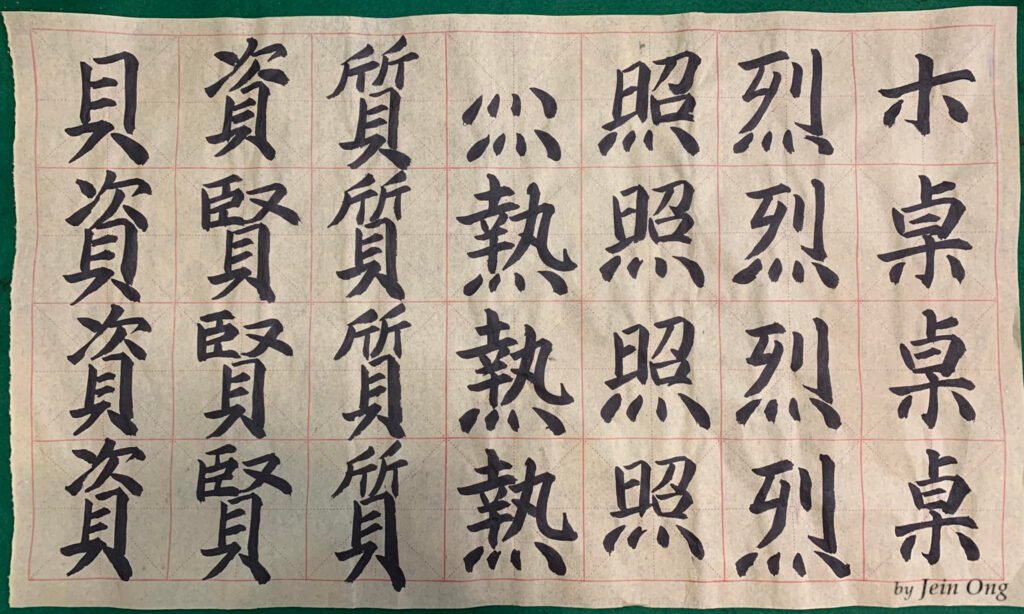 朩桌桌桌
烈烈烈烈
照照照照
灬灬熱熱熱
質質質質
資賢賢賢
貝資資資
by Jein Ong